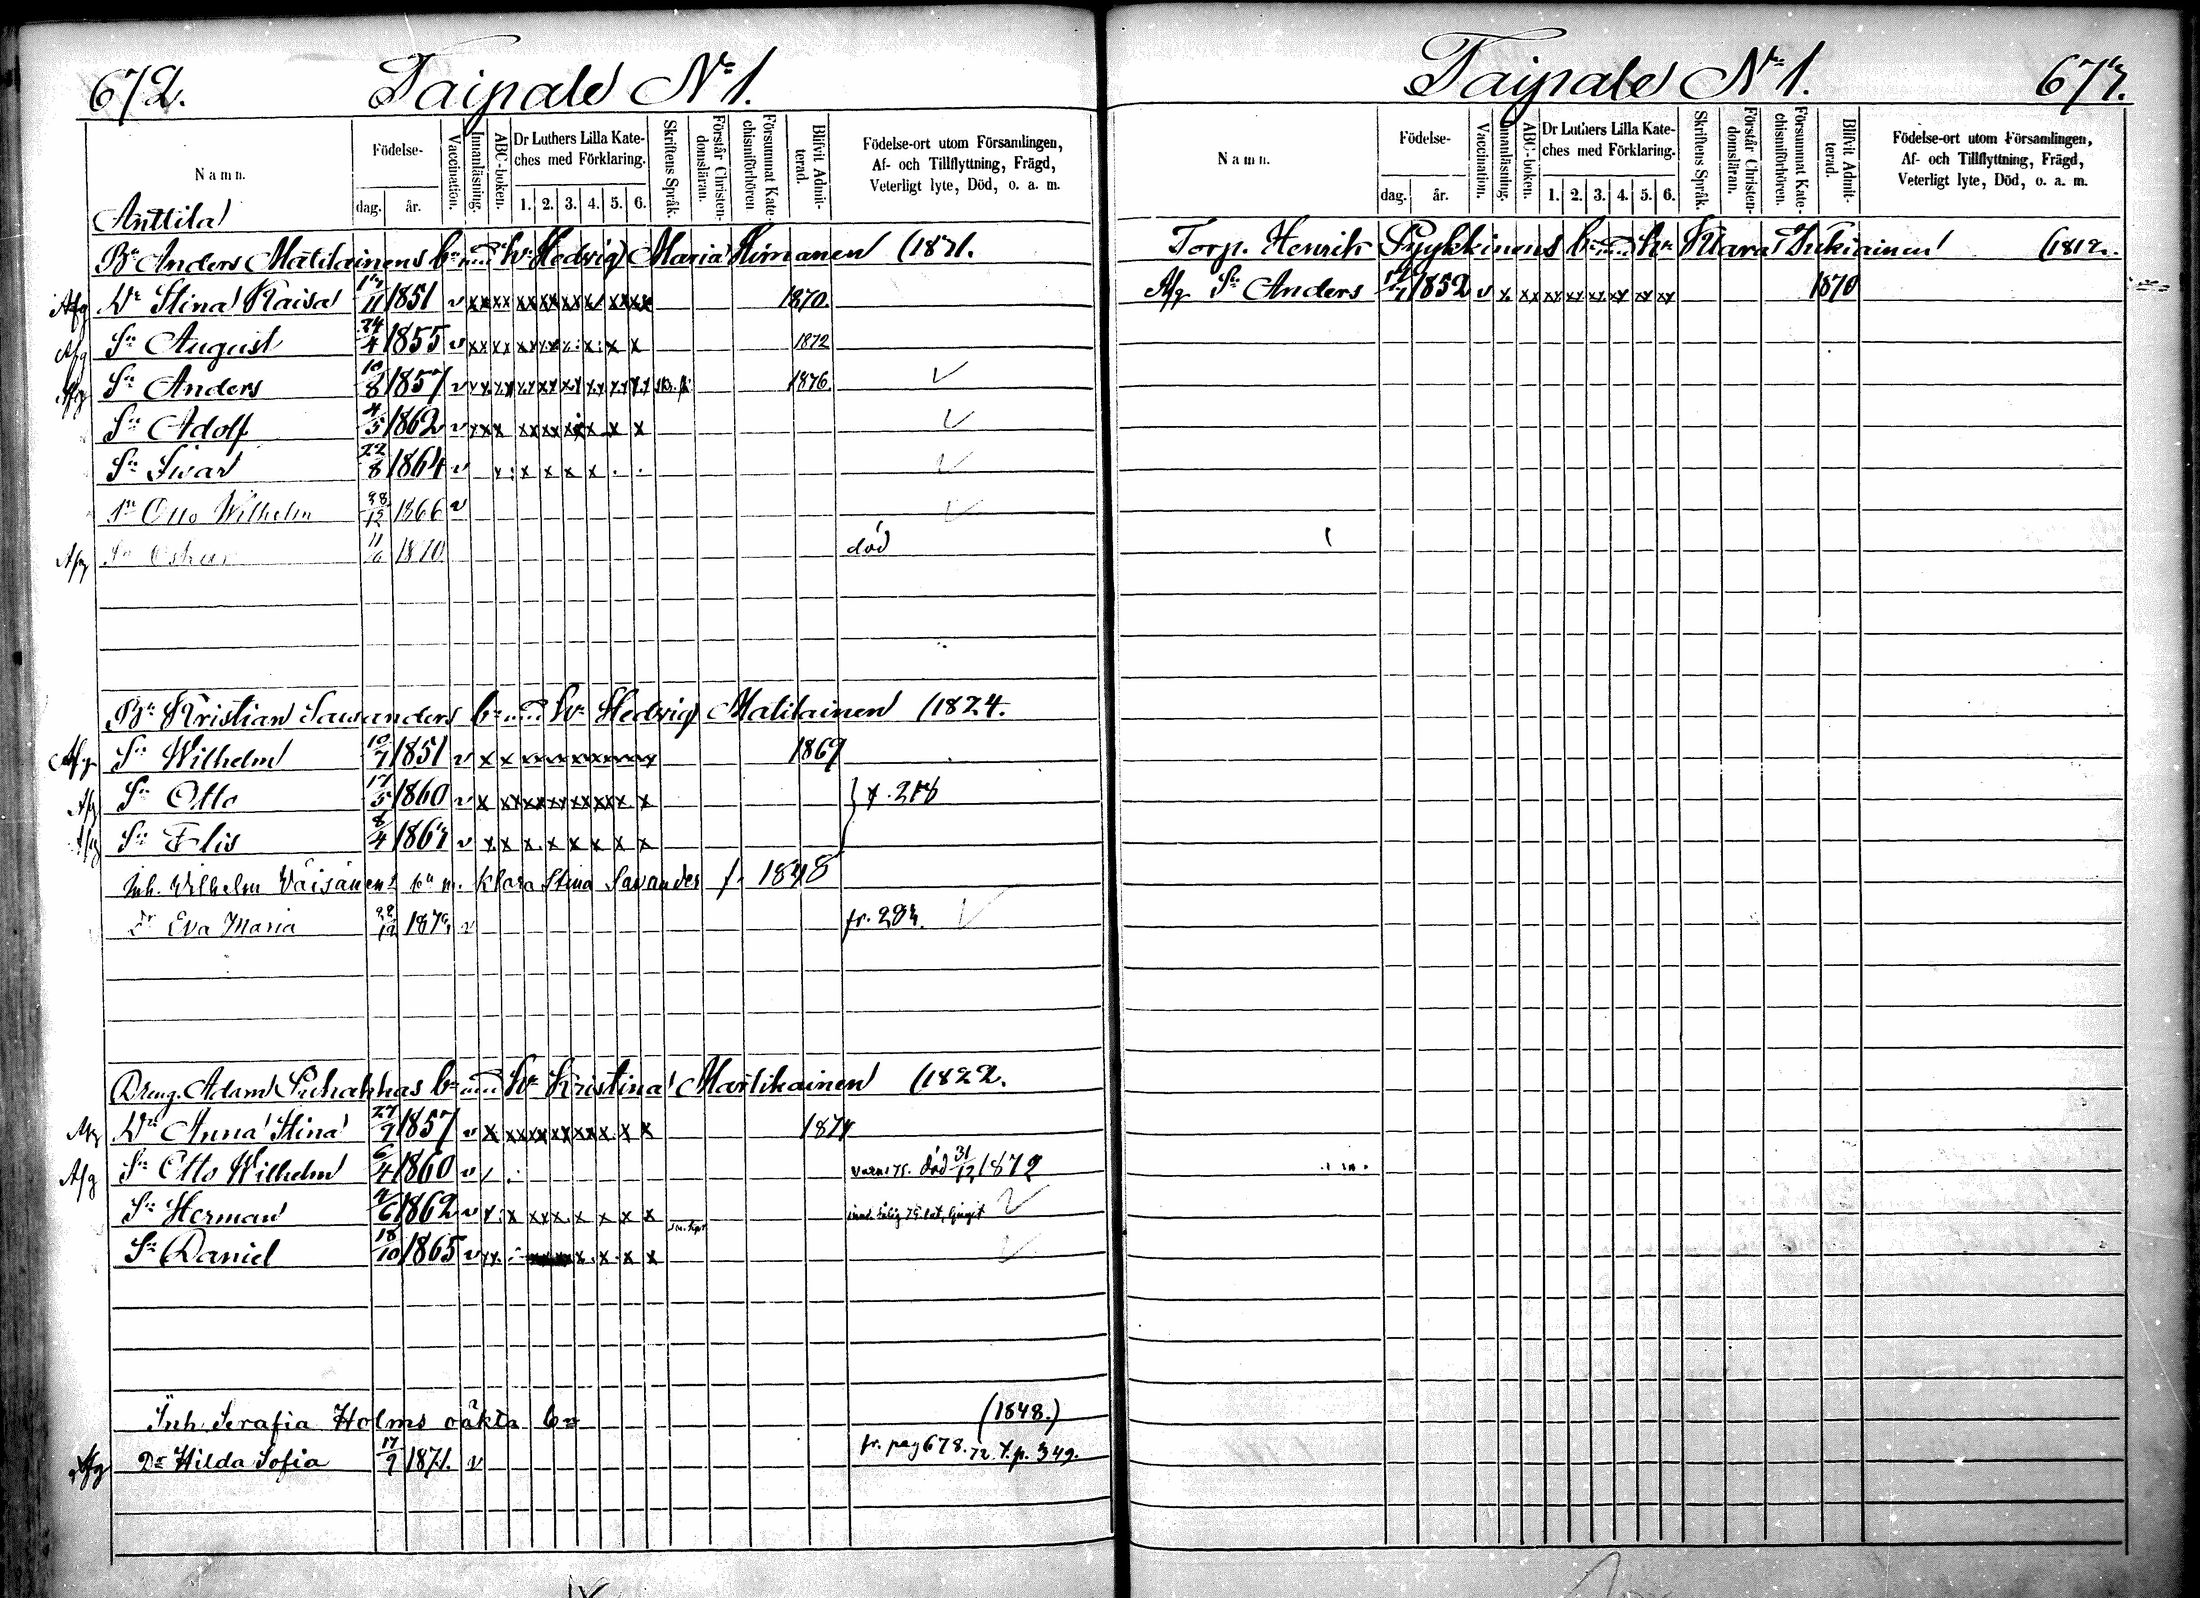 672. Taipale No 1.
Namn.
Födelse-
dag. år.
Vaccination.
Innanläsning.
ABC-boken.
Dr Luthers Lilla Kate-
ches med Förklaring.
1. 2. 3. 4. 5. 6.
Skriftens Språk.
Förstår Christen-
domsläran.
Försummat Kate-
chismiförhören
Blifvit Admit-
terad.
Födelse-ort utom Församlingen,
Af- och Tillflyttning, Frägd,
Veterligt lyte, Död, o. a. m.
Anttila
Bn Anders Matilainens bn med hu Hedvig Maria Himanen (1821.
Afg Dr Stina Kaisa 11 1851 v xx xx xx xx xx x xx xx 1870.
Afg Sn August 24/4 1855 v xx xx xx x x 1872
Afg Sn Anders 10/8 1857 v 1876.
Sn Adolf 4/5 1862 v xxx xx xx x x x
Sn Ivar 22/8 1864 v x: x x x x . .
Sn Otto Wilhelm 28/12 1866 v
Afg Sn Oskar 11 1870 död
Bn Kristian Savanders bn med hu Hedvig Matilainen (1824.
Afg Sn Wilhelm 10/7 1851 v x x 1869
Afg Sn Otto 17/5 1860 v x xx xx xx xx xx x x
Afg Sn Elis 8/4 1863 v x x x x x x x x
Inh. Wilhelm Väisänens bn m. Klara Stina Savander f. 1848
Dr Eva Maria 22/12 1873 v fr. 283.
Dreng. Adam Puhakkas bn med hu Kristina Martikainen (1822.
Afg Dr Anna Stina 27/9 1857 v x xx xx xx xx x. x x 1874
Afg Sn Otto Wilhelm 6/4 1860 v död 31/12 1872
Sn Herman 6 1862 v x: x xx x. x x x x
Sn Daniel 18/10 1865 v xx. x. x. x x
Inh. Serafia Holms oäkta bn (1848.)
Afg Dr Hilda Sofia 17/9 1871. v fr. pag 678. 72 t. p. 349.
Taipale No 1. 673.
Namn.
Födelse-
dag. år.
Vaccination.
Innanläsning.
ABC-boken.
Dr Luthers Lilla Kate-
ches med Förklaring.
1. 2. 3. 4. 5. 6.
Skriftens Språk.
Förstår Christen-
domsläran.
Försummat Kate-
chismiförhören.
Blifvit Admit-
terad.
Födelse-ort utom Församlingen,
Af- och Tillflyttning, Frägd,
Veterligt lyte, Död, o. a. m.
Torp. Henrik Pyykkinens bn med hu Klara Jukiainen (1812.
Afg Sn Anders 1852 v x xx xx xx xx xx xx xx 1870